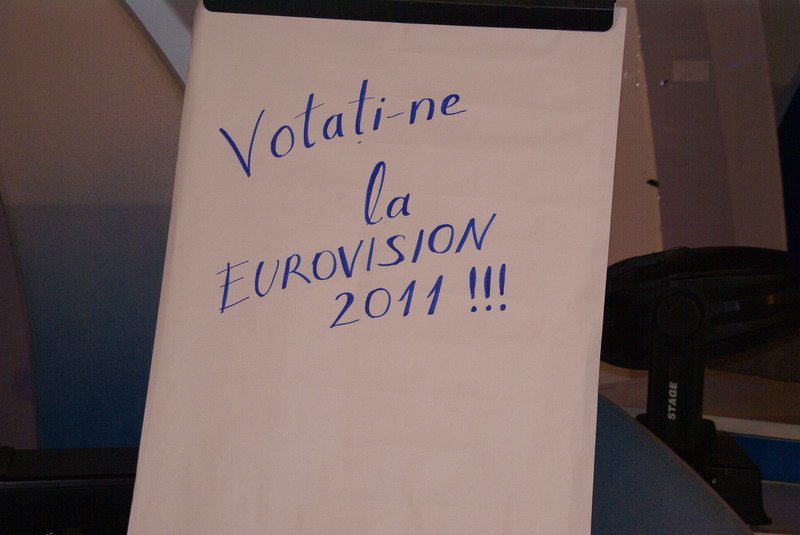 Votați-ne
la
EUROVISION
2011 !!!
STAGE